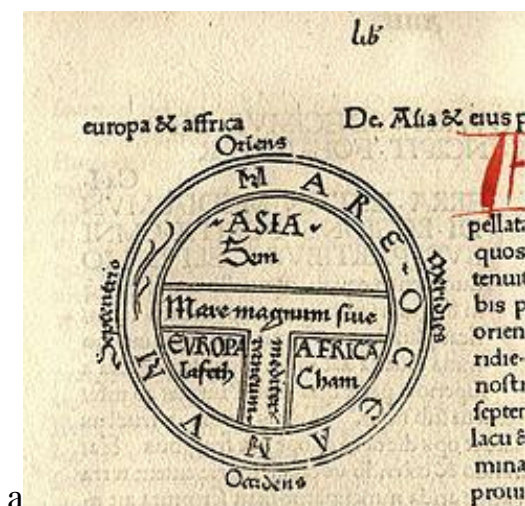 lib'
europa & affrica
De. Asia & eius p
Oriens
MARE OCCEANVM
ASIA
Sem
Septentrio
Meridies
Mare magnum siue
mediterraneum
EVROPA
Iafeth
AFRICA
Cham
Occidens
pellata
quos
tenuit
bis p
orien
ridie
nostr
septen
lacu &
mina
a